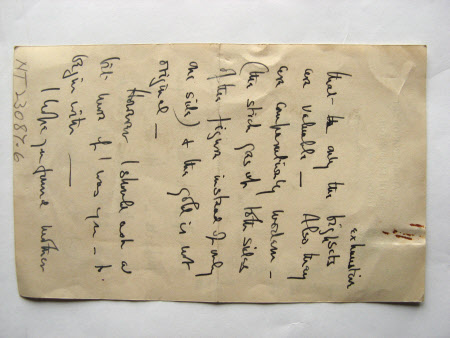 exhaustive
that - the only the big sets
are valuable — Also they
are comparatively modern —
(the stick goes up both sides
of the figure instead of only
one side) & the gold is not
original —
However I should ask a
bit more if I was you — to
begin with —
I hope you found mother
NT 23087-6